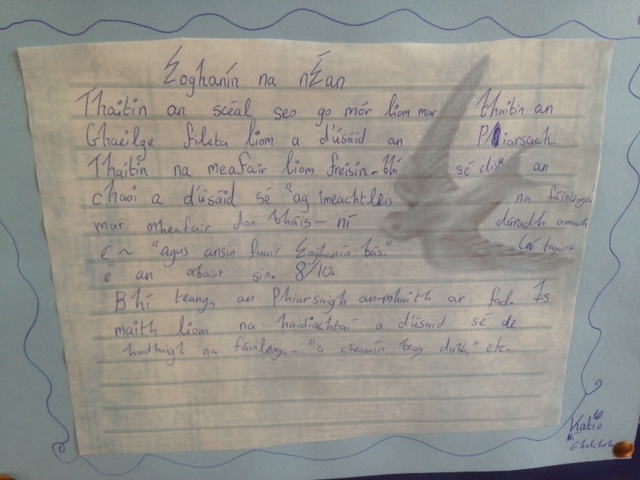 Eoghanín na nÉan
Thaitin an scéal seo go mór liom mar thaitin an
Ghaeilge fileta liom a d'úsáid an Phiarsach.
Thaitin na meafair liom freisin - bhí sé an
chaoi a d'úsáid sé "ag imeacht leis na fáinleoga"
mar mheafair don bháis - ní dúradh amach
é ~ "agus ansin fuair Eoghanín bás."
é an sin. 8/10.
Bhí teanga an Phiarsaigh an-mhaith ar fad. Is
maith liom na haidiachtaí a d'úsáid sé de
na fáinleoga - "a beag dubh," etc.
Katie
Ní